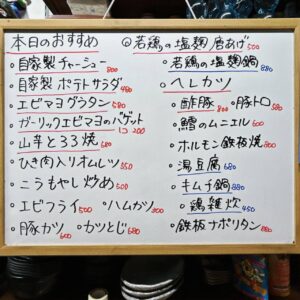 本日のおすすめ
・自家製チャーシュー 800
・自家製ポテトサラダ 480
・エビマヨグラタン 580
・ガーリックエビマヨのバゲット 1コ 200
・山芋とろろ焼 680
・ひき肉入りオムレツ 550
・こうもやし炒め 500
・エビフライ 500 ・ハムカツ 500
・豚カツ 600 ・カツとじ 680
◎若鶏の塩麹唐あげ 500
・若鶏の塩麹鍋 880
・ヘレカツ
・酢豚 800 ・豚トロ 580
・鱈のムニエル 600
・ホルモン鉄板焼 800
・湯豆腐 680
・キムチ鍋 880
・鶏雑炊 450
・鉄板ナポリタン 880